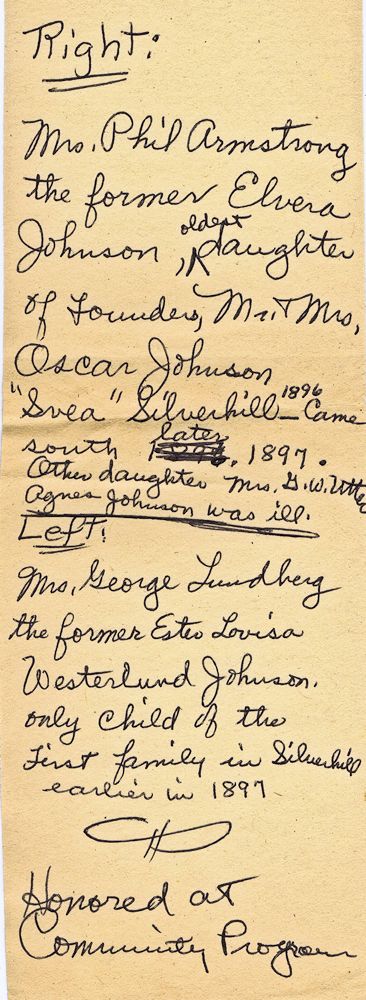 Right:
Mrs. Phil Armstrong
the former Elvera
oldest
Johnson, daughter
of Founders, Mr. & Mrs.
Oscar Johnson
"Svea" Silverhill – 1896 Came
south later, 1897.
Other daughter Mrs. G. W. Utter
Agnes Johnson was ill.
Left:
Mrs. George Lundberg
the former Ester Lovisa
Westerlund Johnson.
only child of the
First family in Silverhill
earlier in 1897
Honored at
Community Program